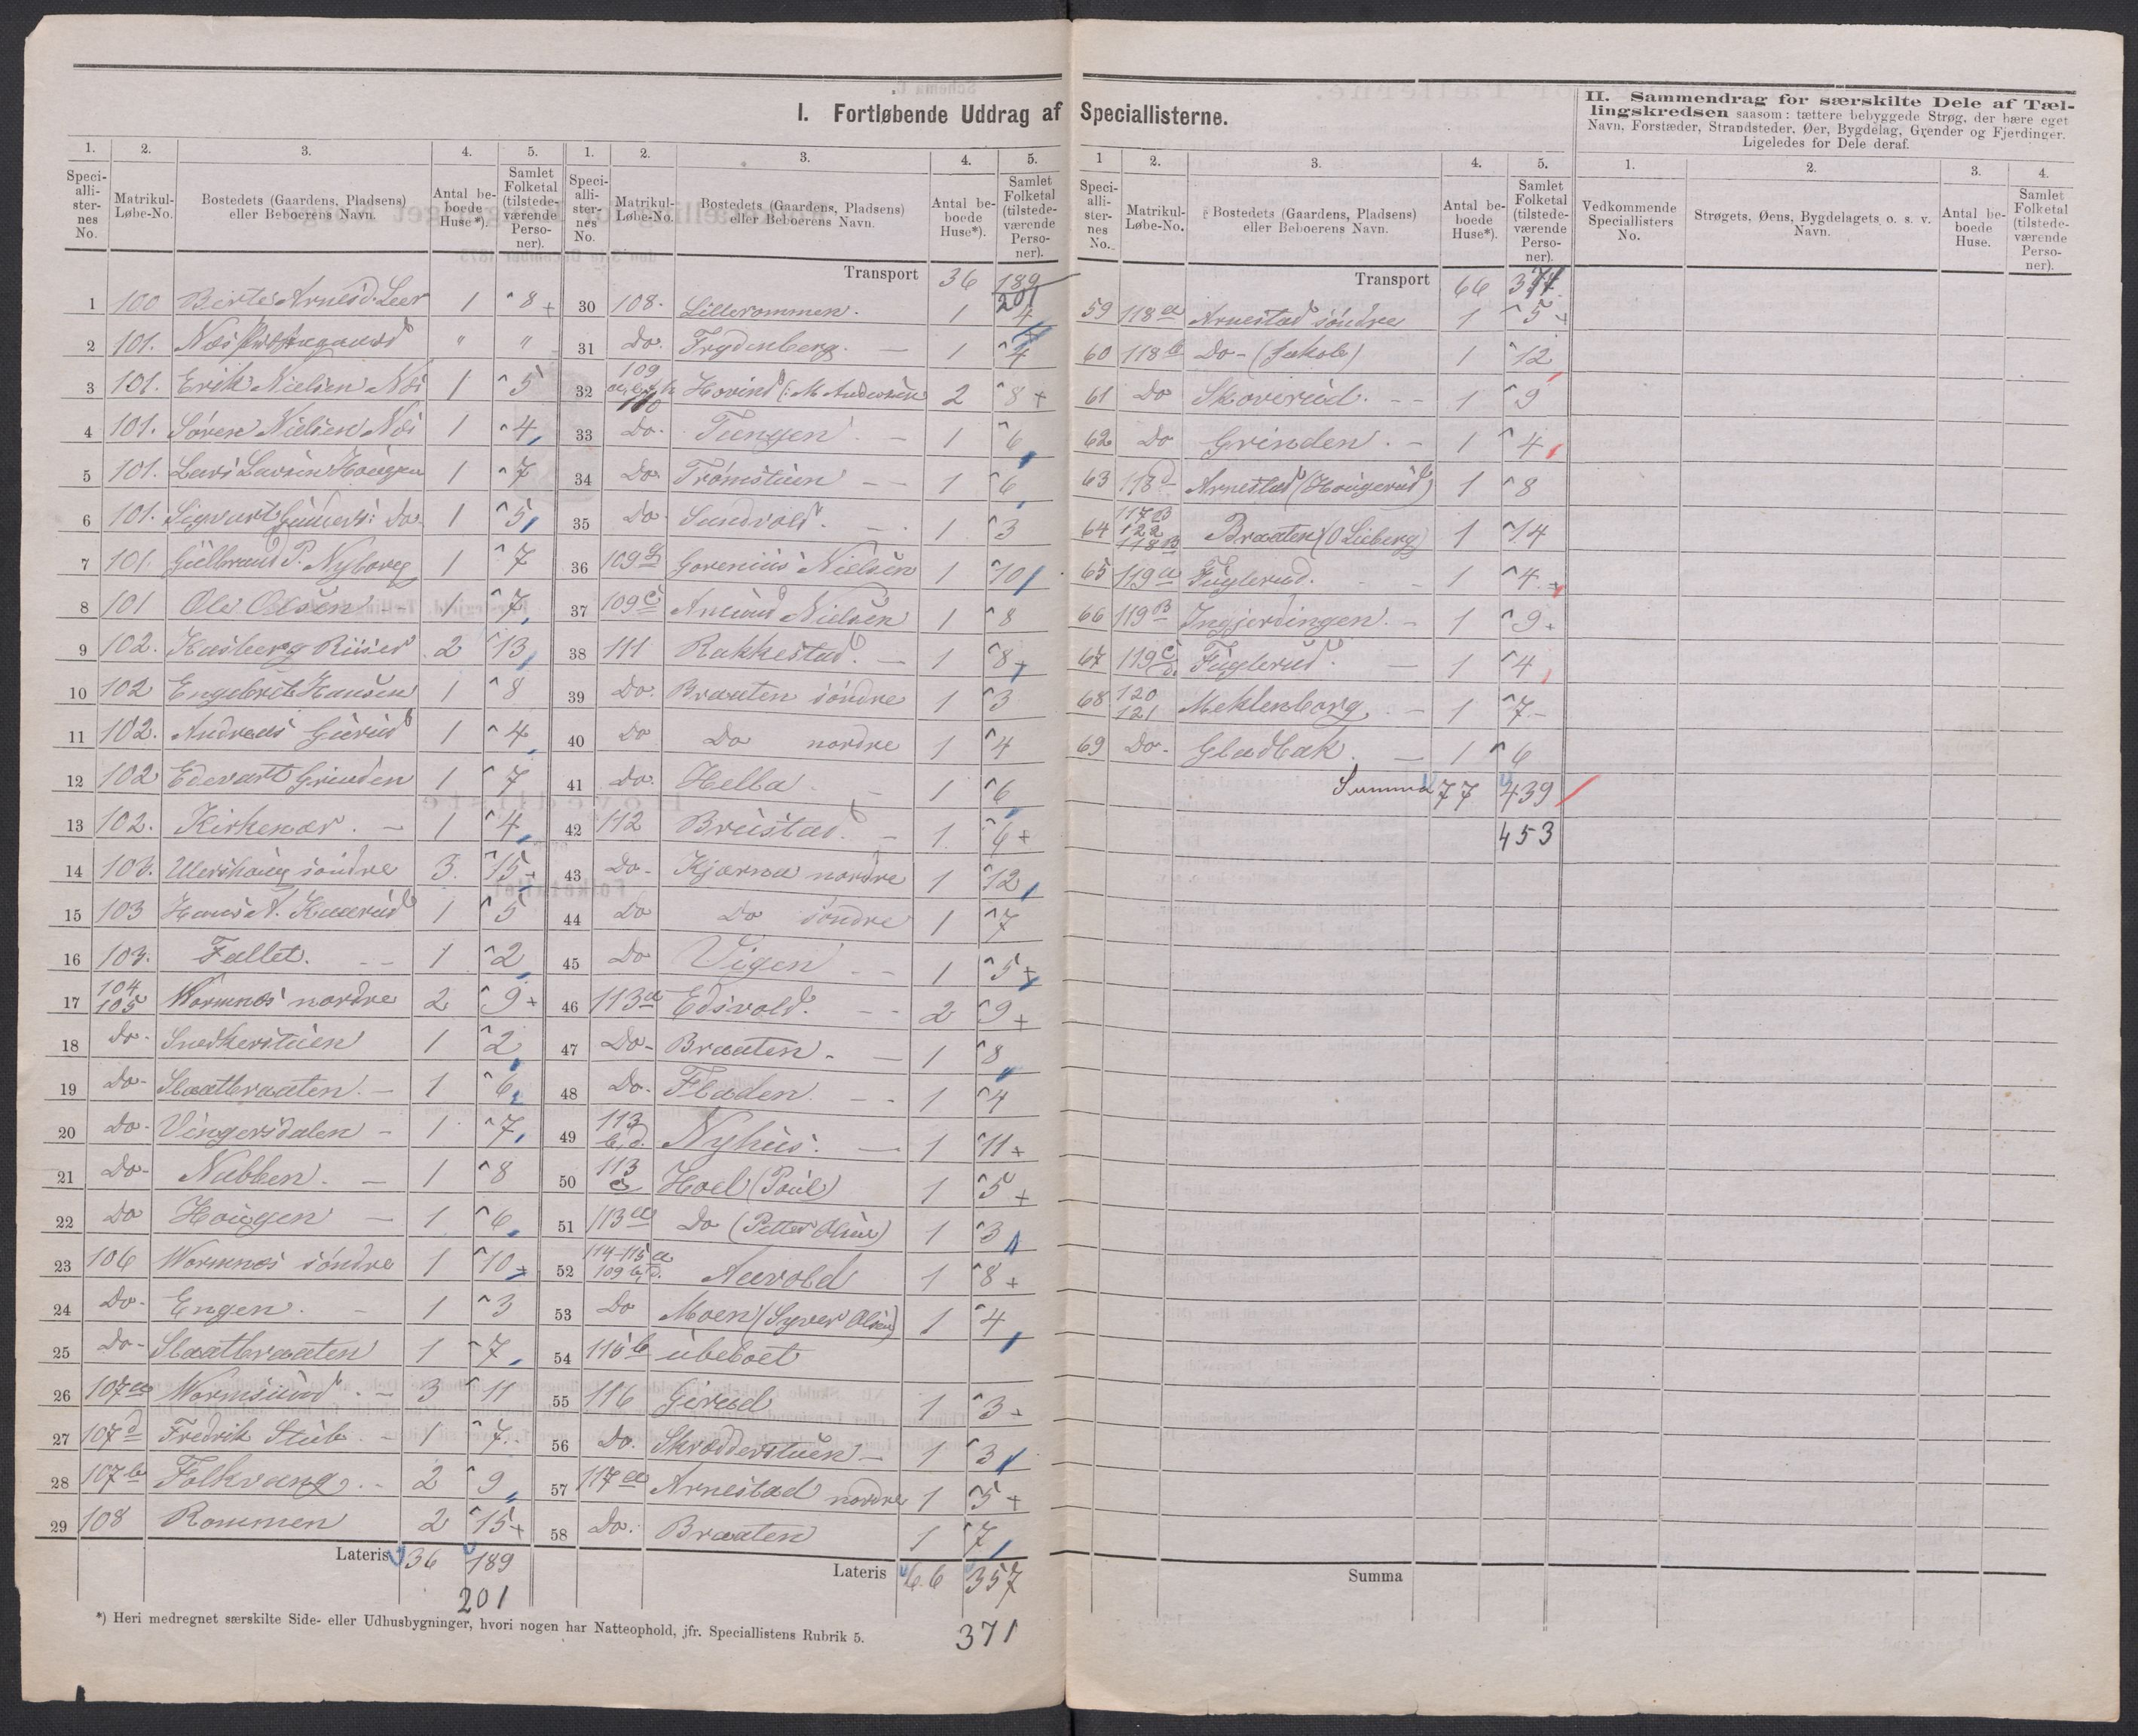 I. Fortløbende Uddrag af Speciallisterne.
1. 2. 3. 4. 5.
Speciallisternes No. Matrikul-Løbe-No. Bostedets (Gaardens, Pladsens) eller Beboerens Navn. Antal beboede Huse*). Samlet Folketal (tilstedeværende Personer).
1 100 Birte Arnesd. Leer 1 8
2 101. Næs Præstegaard " "
3 101. Erik Nielsen Næs 1 5
4 101. Søren Nielsen Næs 1 4
5 101. Lars Larsen Hougen 1 7
6 101. Sigvart Do. 1 5
7 101. Gulbrand P. Nyborg 1 7
8 101 Ole Olsen 1 7
9 102. Kasberg Riiser 2 13
10 102 Engebret Hansen 1 8
11 102. Andreas 1 4
12 102 Edevart Grinden 1 7
13 102. Kirkenær. 1 4
14 103. Ullershoug søndre 3. 15
15 103 Hans A. 1 5
16 103. Fallet. 1 2
17 104 105 Wormnæs nordre 2 9
18 do. Snedkerstuen 1 2
19 Do Slaatbraaten. 1 6
20 Do. Vingersdalen 1 7
21 Do Nabben. 1 8
22 Do Hougen 1 6
23 106 Wormnæs søndre 1 10
24 Do. Engen. 1 3
25 Do Slaatbraaten 1 7
26 107a Wormsund. 3 11
27 107d Fredrik Stub 1 7
28 107b Folkvang. 2 9
29 108 Rommen 2 15
Lateris 36 189
201
*) Heri medregnet særskilte Side- eller Udhusbygninger, hvori nogen har Natteophold, jfr. Speciallistens Rubrik 5.
1. 2. 3. 4. 5.
Speciallisternes No. Matrikul-Løbe-No. Bostedets (Gaardens, Pladsens) eller Beboerens Navn. Antal beboede Huse*). Samlet Folketal (tilstedeværende Personer).
Transport 36 189
201
30 108. Lillerommen. 1 4
31 Do. Frydenberg. 1 4
32 109 110 Horind (: M Andersen 2 8
33 Do. Tangen. 1 6
34 Do. Trømstuen 1 6
35 Do. Sundvold. 1 3
36 109 Gorenius Nielsen 1 10
37 109c Amund Nielsen 1 8
38 111 Rakkestad. 1 8
39 Do. Braaten søndre 1 3
40 Do Do nordre 1 4
41 Do. Hella 1 6
42 112 Brustad. 1 6
43 Do. Kjærna nordre 1 12
44 Do Do søndre 1 7
45 Do Vigen 1 5
46 113a Edsvold. 2 9
47 Do. Braaten. 1 8
48 Do. Fladen. 1 4
49 113 b,d. Nyhus. 1 11
50 113 c Hoel (Poul) 1 5
51 113a Do (Petter Olsen) 1 3
52 114-115a 109 b,d. Aavold 1 8
53 Do Moen (Syver Olsen) 1 4
54 115b ubeboet
55 116 Gjerud 1 3
56 Do. Skrædderstuen 1 3
57 117a Arnestad nordre 1 5
58 Do. Braaten 1 7
Lateris 66 357
371
1 2. 3. 4. 5.
Speciallisternes No. Matrikul-Løbe-No. Bostedets (Gaardens, Pladsens) eller Beboerens Navn. Antal beboede Huse*). Samlet Folketal (tilstedeværende Personer).
Transport 66 371
59 118a Arnestad søndre 1 5
60 118b Do (Jakob) 1 12
61 Do Skovrud. 1 9
62 Do Grinden. 1 4
63 118d Arnestad (Hougerud) 1 8
64 117B 122 118B Braaten (O Lieberg) 1 14
65 119a Fuglerud. 1 4
66 119B Ingjerdingen. 1 9
67 119c d. Fuglerud. 1 4
68 120 121 Meklenborg. 1 7
69 Do. Gladbak. 1 6
Summa 77 439
453
Summa
II. Sammendrag for særskilte Dele af Tællingskredsen saasom: tættere bebyggede Strøg, der bære eget Navn, Forstæder, Strandsteder, Øer, Bygdelag, Grender og Fjerdinger. Ligeledes for Dele deraf.
1. 2. 3. 4.
Vedkommende Speciallisters No. Strøgets, Øens, Bygdelagets o. s. v. Navn. Antal beboede Huse. Samlet Folketal (tilstedeværende Personer).